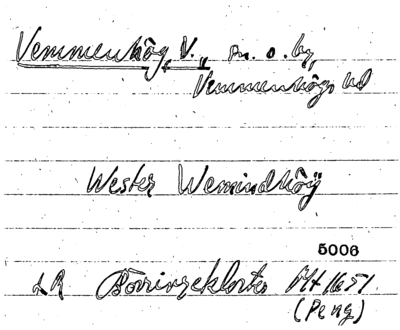 Vemmenhög, V. sn. o. by,
Vemmenhögs hd
Wester Wemindhöÿ
5006
LR Börringekloster Alt 1651
(Peng)